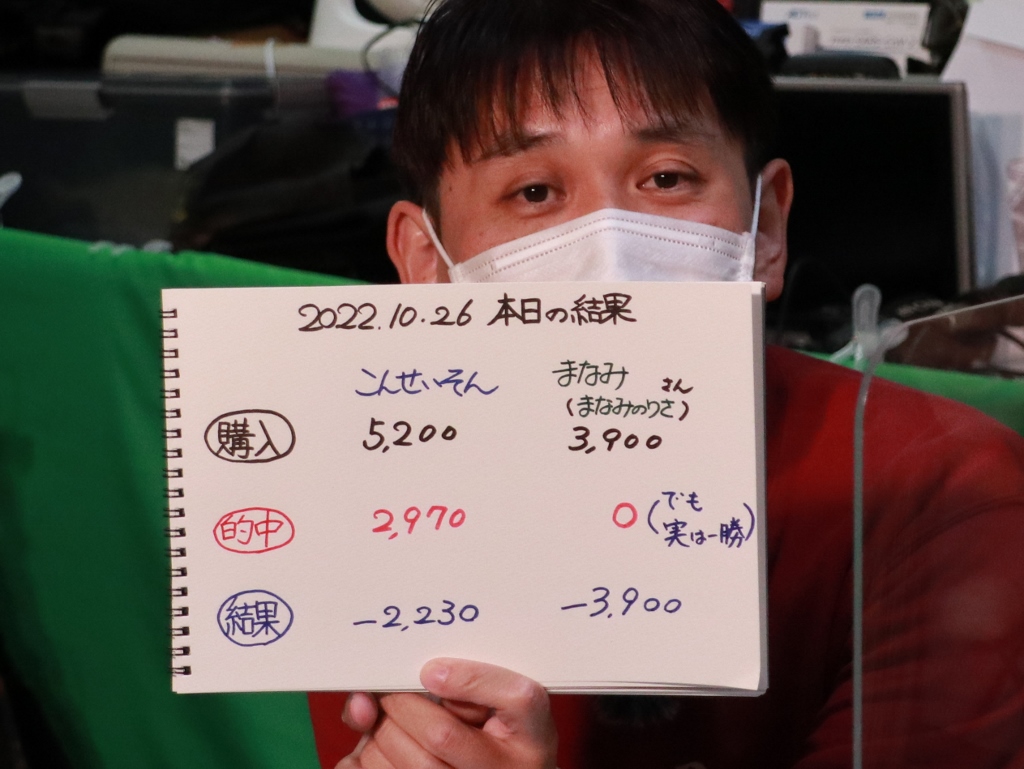 2022.10.26 本日の結果
こんせいそん まなみ さん
(まなみのりさ)
購入 5,200 3,900
的中 2,970 0 (でも
実は一勝)
結果 -2,230 -3,900